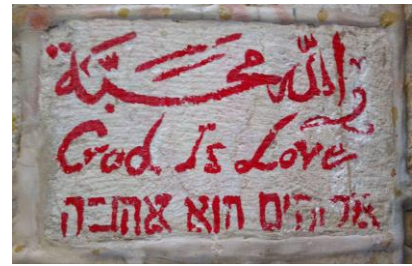 الله محبـــة
God Is Love
אלוהים הוא אהבה